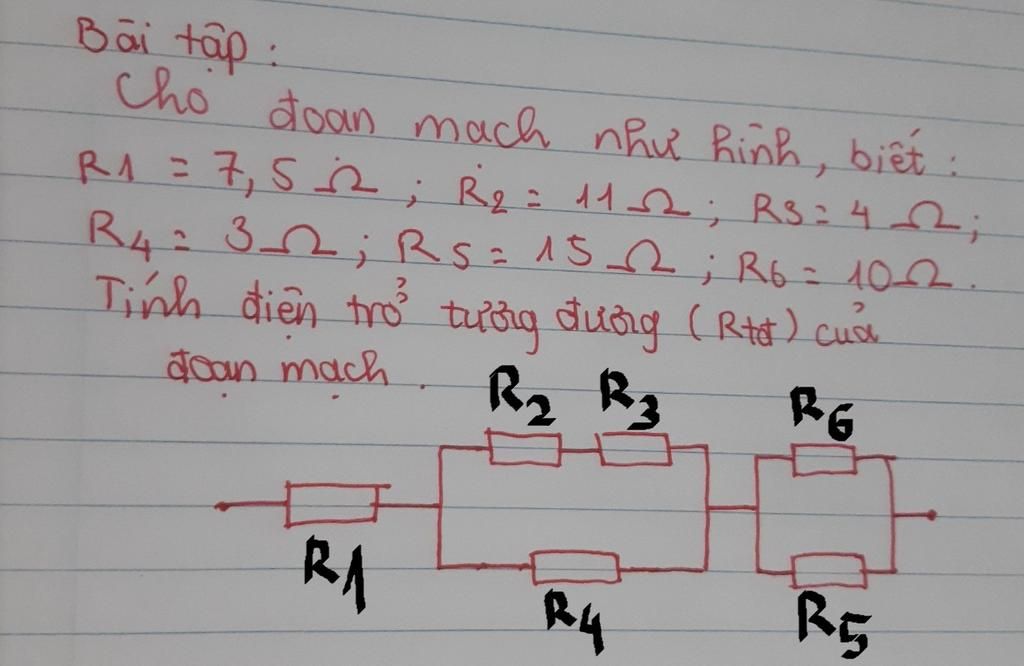 Bài tập:
Cho đoạn mạch như hình, biết:
R1 = 7,5 Ω ; R2 = 11 Ω ; R3 = 4 Ω ;
R4 = 3 Ω ; R5 = 15 Ω ; R6 = 10 Ω .
Tính điện trở tương đương (Rtđ) của
đoạn mạch .
R2 R3 R6
R1
R4 R5